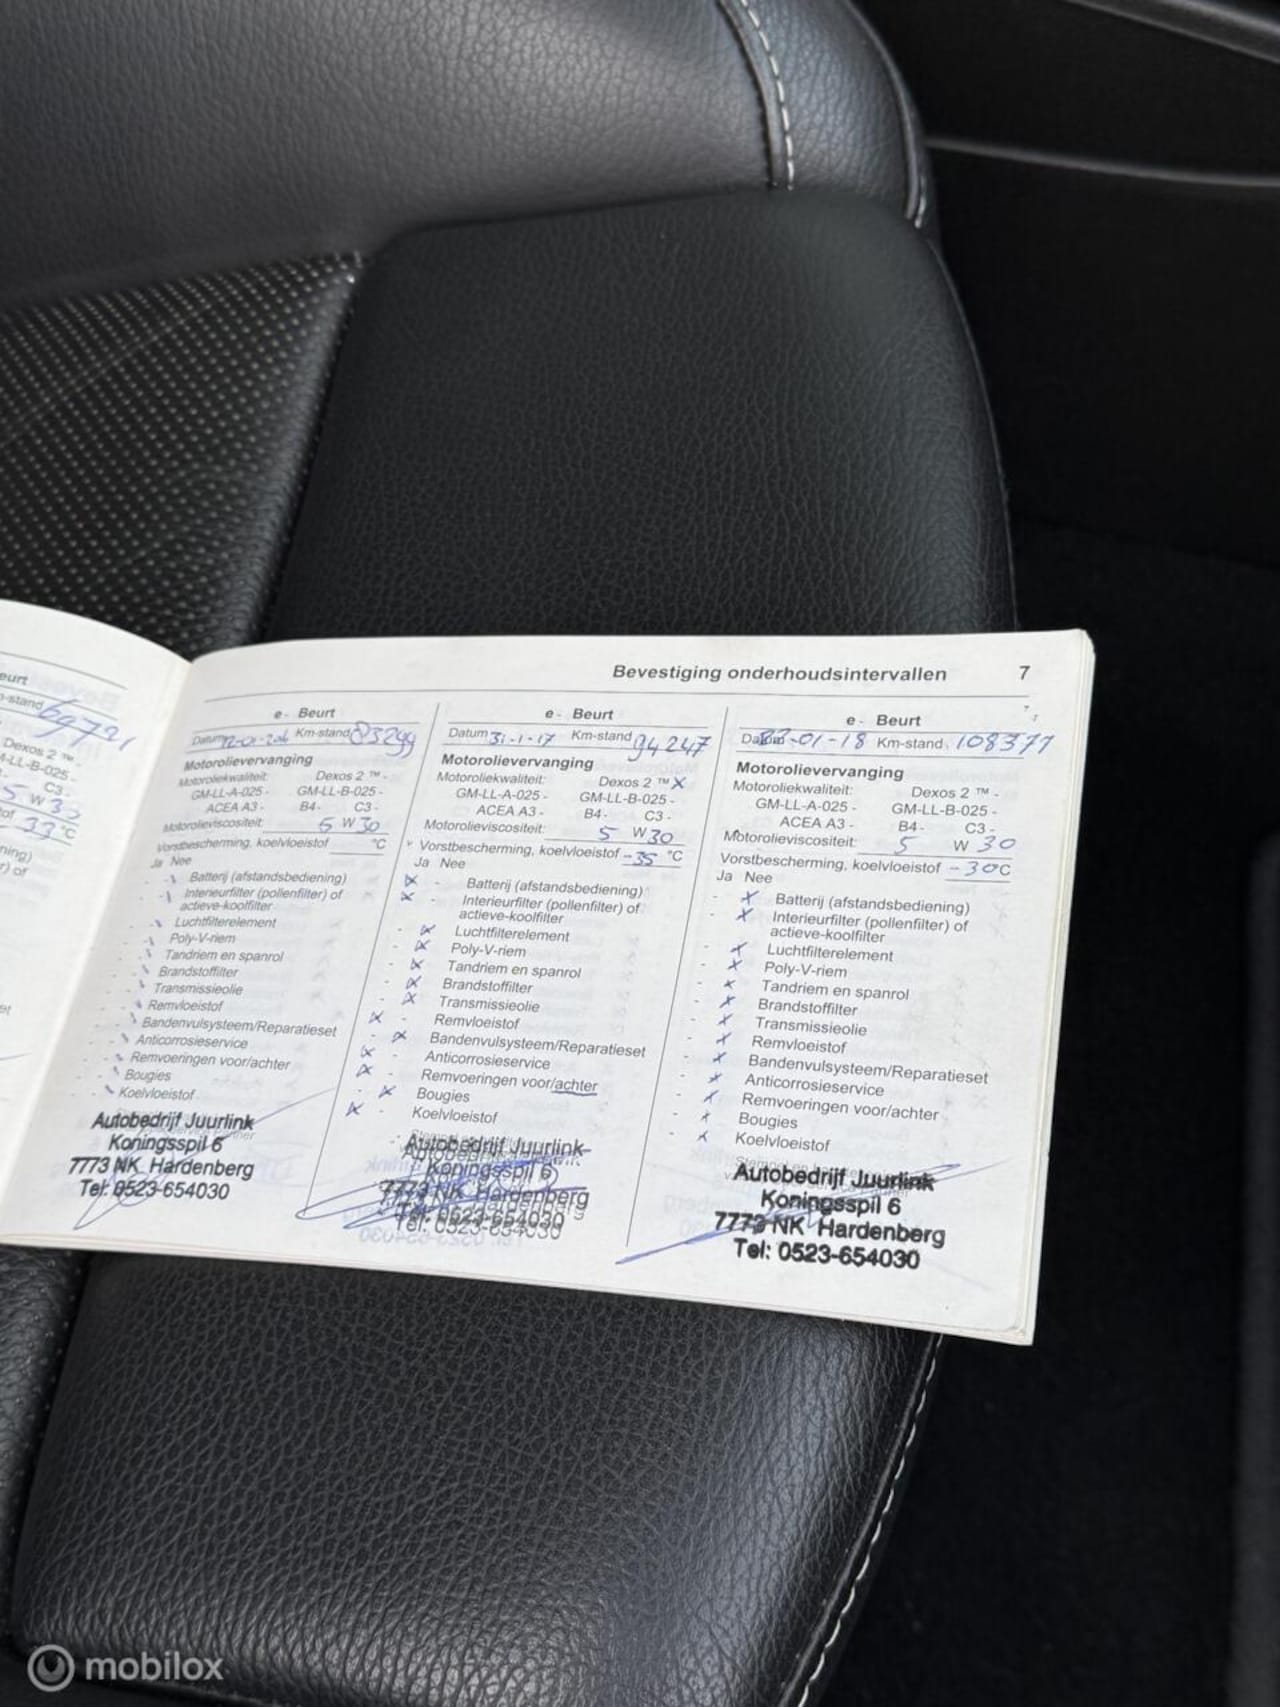 Bevestiging onderhoudsintervallen 7
eurt
-stand 69721
Dexos 2 ™ -
-LL-B-025 -
C3 -
5 W 3
of -33 °C
ning)
r) of
e - Beurt
Datum Km-stand 83299
Motorolievervanging
Motoroliekwaliteit: Dexos 2 ™ -
GM-LL-A-025 - GM-LL-B-025 -
ACEA A3 - B4- C3 -
Motorolieviscositeit: 5 W 30
Vorstbescherming, koelvloeistof °C
Ja Nee
Batterij (afstandsbediening)
Interieurfilter (pollenfilter) of
actieve-koolfilter
Luchtfilterelement
Poly-V-riem
Tandriem en spanrol
Brandstoffilter
Transmissieolie
Remvloeistof
Bandenvulsysteem/Reparatieset
Anticorrosieservice
Remvoeringen voor/achter
Bougies
Koelvloeistof
Autobedrijf Juurlink
Koningsspil 6
7773 NK Hardenberg
Tel: 0523-654030
e - Beurt
Datum 31-1-17 Km-stand 94247
Motorolievervanging
Motoroliekwaliteit: Dexos 2 ™ X
GM-LL-A-025 - GM-LL-B-025 -
ACEA A3 - B4- C3 -
Motorolieviscositeit: 5 W 30
Vorstbescherming, koelvloeistof -35 °C
Ja Nee
X - Batterij (afstandsbediening)
X - Interieurfilter (pollenfilter) of
actieve-koolfilter
- X Luchtfilterelement
- X Poly-V-riem
- X Tandriem en spanrol
- X Brandstoffilter
- X Transmissieolie
X - Remvloeistof
- X Bandenvulsysteem/Reparatieset
X - Anticorrosieservice
X - Remvoeringen voor/achter
- X Bougies
X - Koelvloeistof
Autobedrijf Juurlink
Koningsspil 6
7773 NK Hardenberg
Tel: 0523-654030
e - Beurt
Datum -01-18 Km-stand 108377
Motorolievervanging
Motoroliekwaliteit: Dexos 2 ™ -
GM-LL-A-025 - GM-LL-B-025 -
ACEA A3 - B4- C3 -
Motorolieviscositeit: 5 W 30
Vorstbescherming, koelvloeistof -30°C
Ja Nee
- X Batterij (afstandsbediening)
- X Interieurfilter (pollenfilter) of
actieve-koolfilter
- X Luchtfilterelement
- X Poly-V-riem
- X Tandriem en spanrol
- X Brandstoffilter
- X Transmissieolie
- X Remvloeistof
- X Bandenvulsysteem/Reparatieset
- X Anticorrosieservice
- X Remvoeringen voor/achter
- X Bougies
- X Koelvloeistof
Autobedrijf Juurlink
Koningsspil 6
7773 NK Hardenberg
Tel: 0523-654030
mobilox